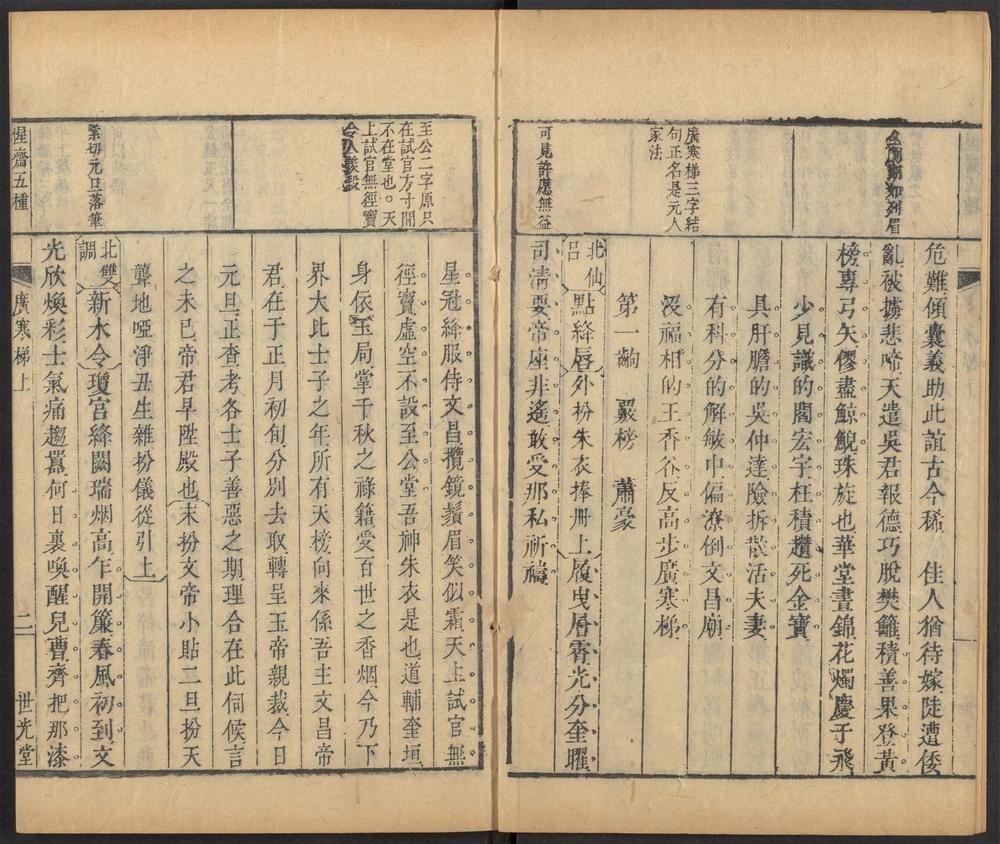 危難傾囊義助此誼古今稀 佳人猶待嫁陡遭倭
亂被擄悲啼天遣吳君報德巧脫樊籬積善果登黃
榜專弓矢僇盡鯨鯢珠旋也華堂晝錦花燭慶于飛
少見識的閻宏宇枉積趲死金寶
具肝膽的吳仲達險拆散活夫妻
有科分的解敏中偏潦倒文昌廟
没福相的王香谷反高步廣寒梯
廣寒梯三字結
句正名是元人
家法
第一齣 嚴榜 蕭豪
北仙呂
點絳唇
外扮朱衣捧冊上
履曳層霄光分奎曜
司淸要帝座非遙敢受那私祈禱
可見許應無益
星冠絳服侍文昌攬鏡鬚眉笑似霜天上試官無
徑竇虛空不設至公堂吾神朱衣是也道輔奎垣
至公二字原只
在試官方寸間
不在堂也。天
上試官無徑竇
身依玉局掌千秋之祿籍愛百世之香烟今乃下
界大比士子之年所有天榜向來係吾主文昌帝
君在于正月初旬分別去取轉呈玉帝親裁今日
元旦正香考各士子善惡之期理合在此伺候言
之未已帝君早陞殿也
末扮文帝小貼二旦扮天
聾地啞淨丑生雜扮儀從引上
北雙調
新水令
瓊宮絳闕瑞烟高乍開簾春風初到文
光欣煥彩士氣痛趨囂何日裏喚醒兒曹齊把那漆
緊切元旦落筆
惺齋五種
廣寒梯上
二
世光堂